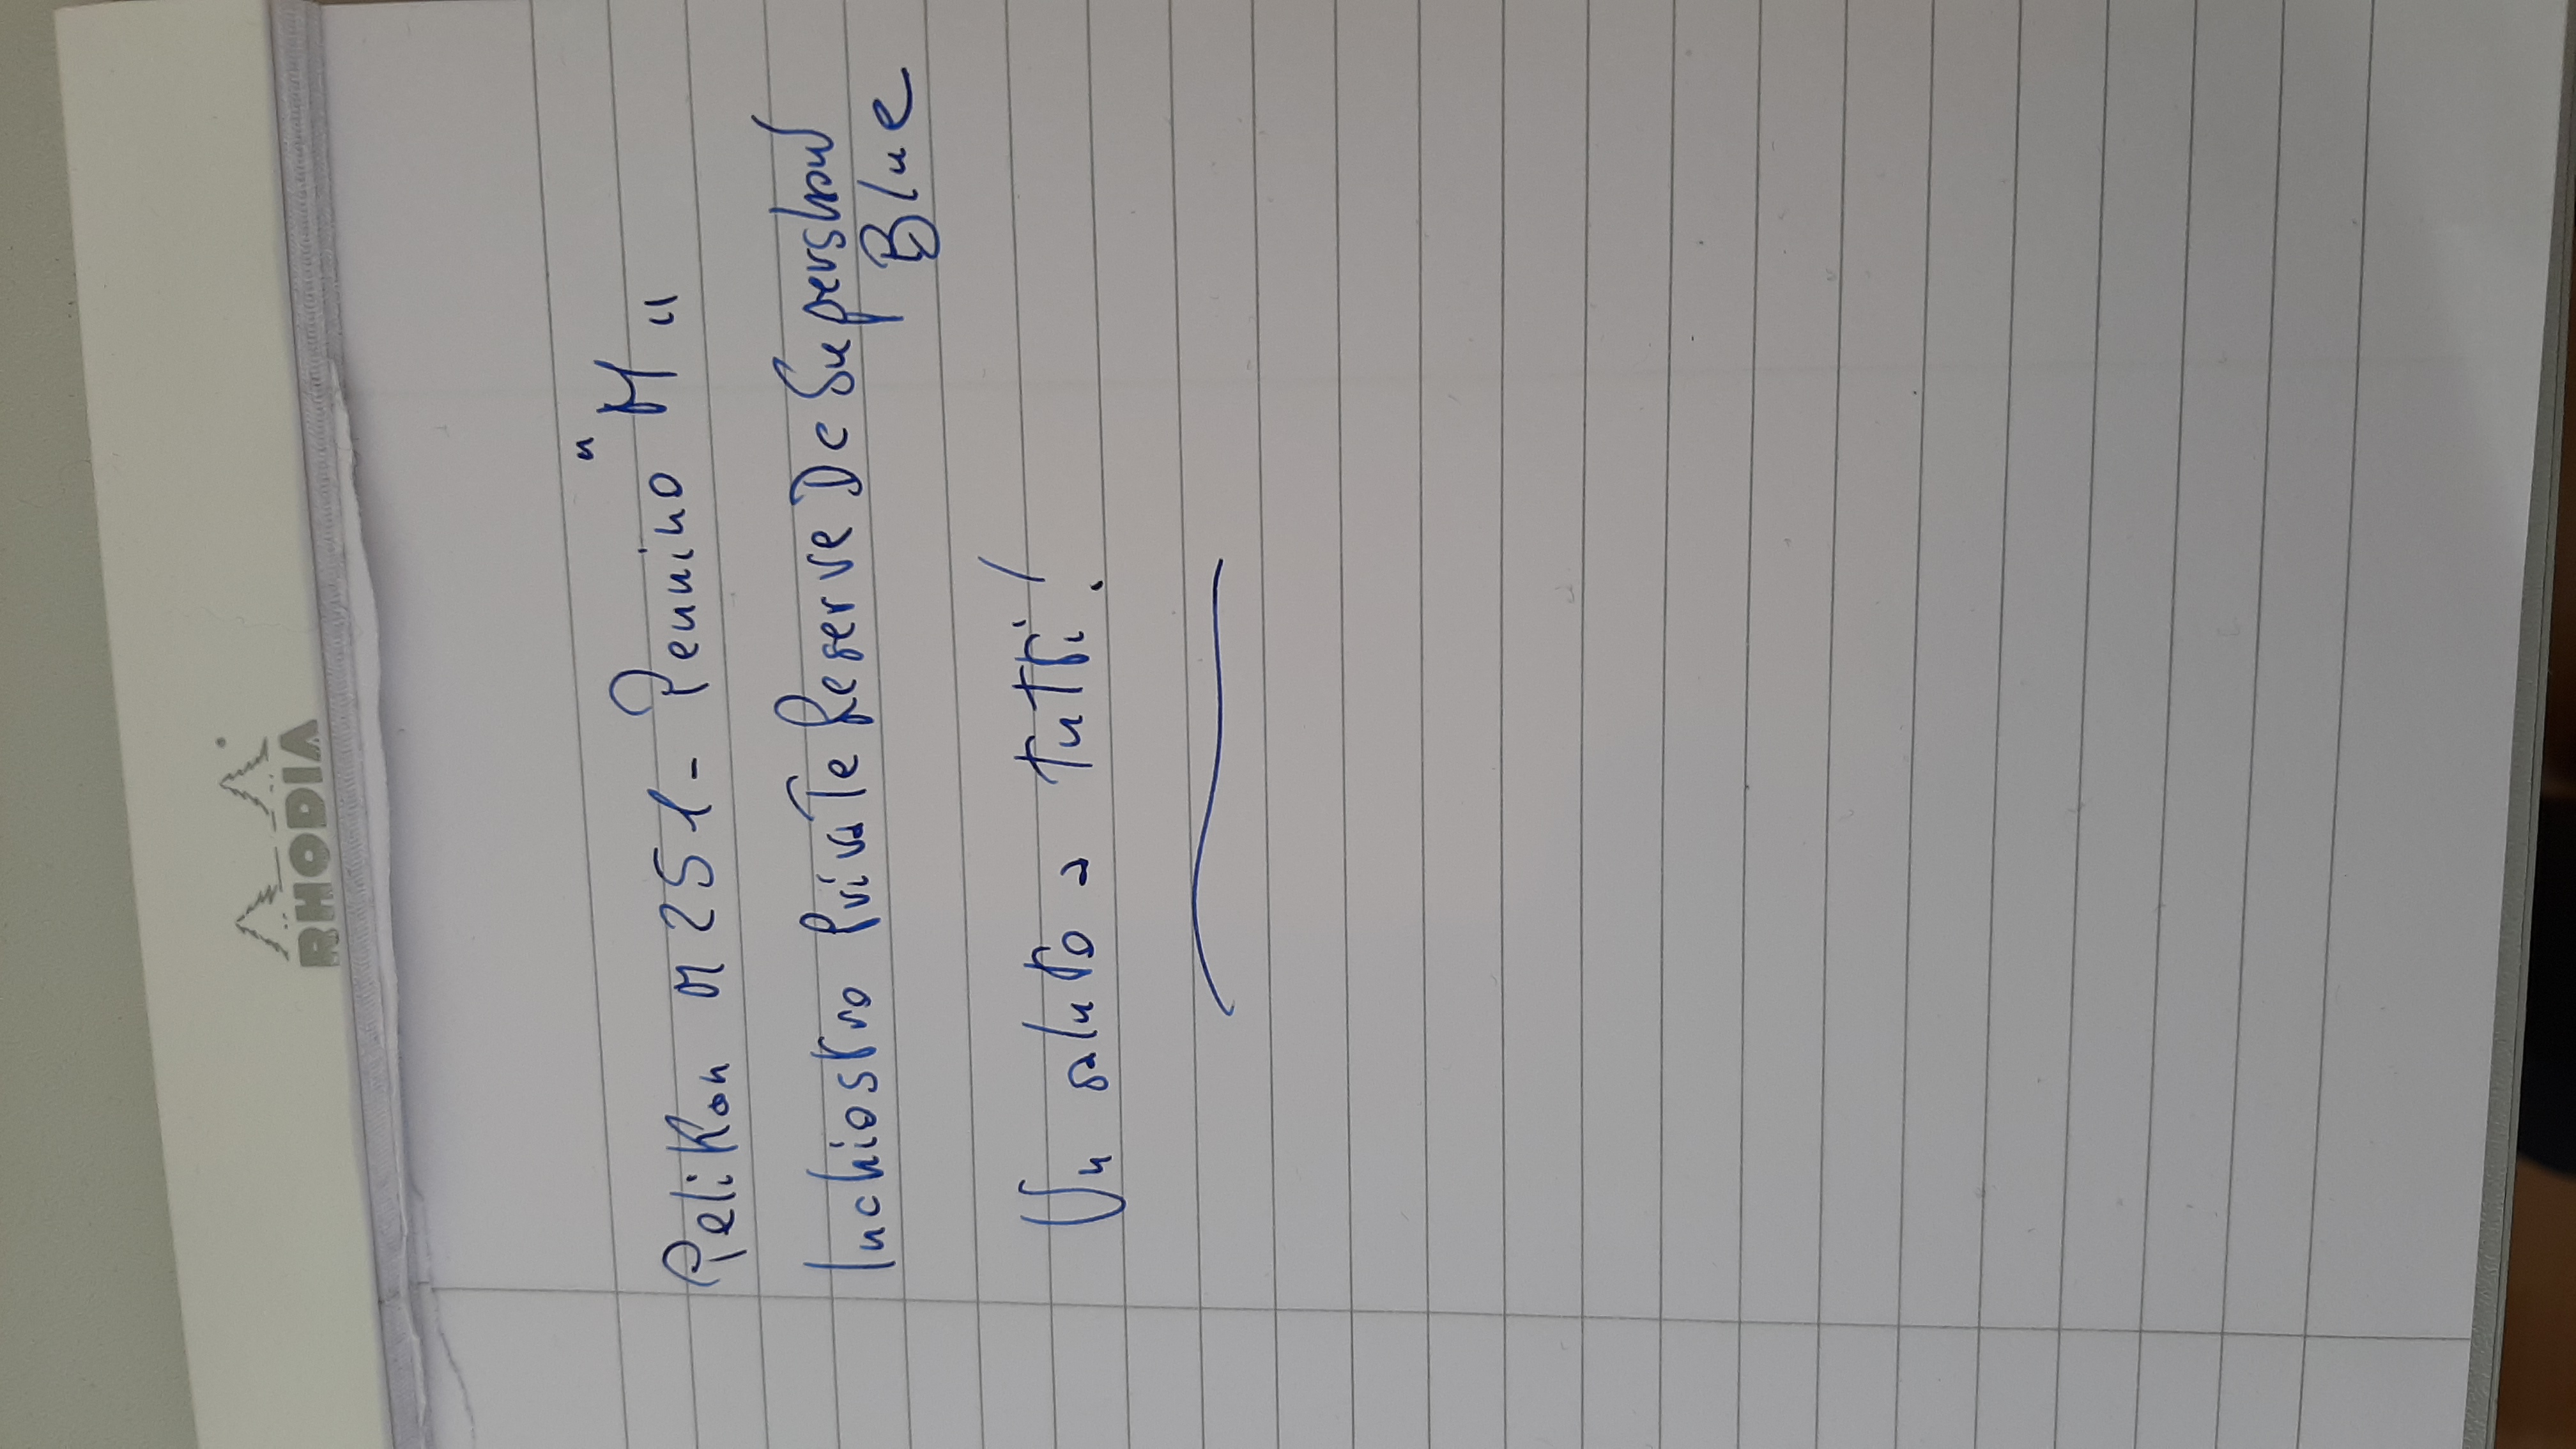 RHODIA
Pelikan M 251 - Pennino "M"
Inchiostro Private Reserve Dc Supershow
Blue
Un saluto a tutti!